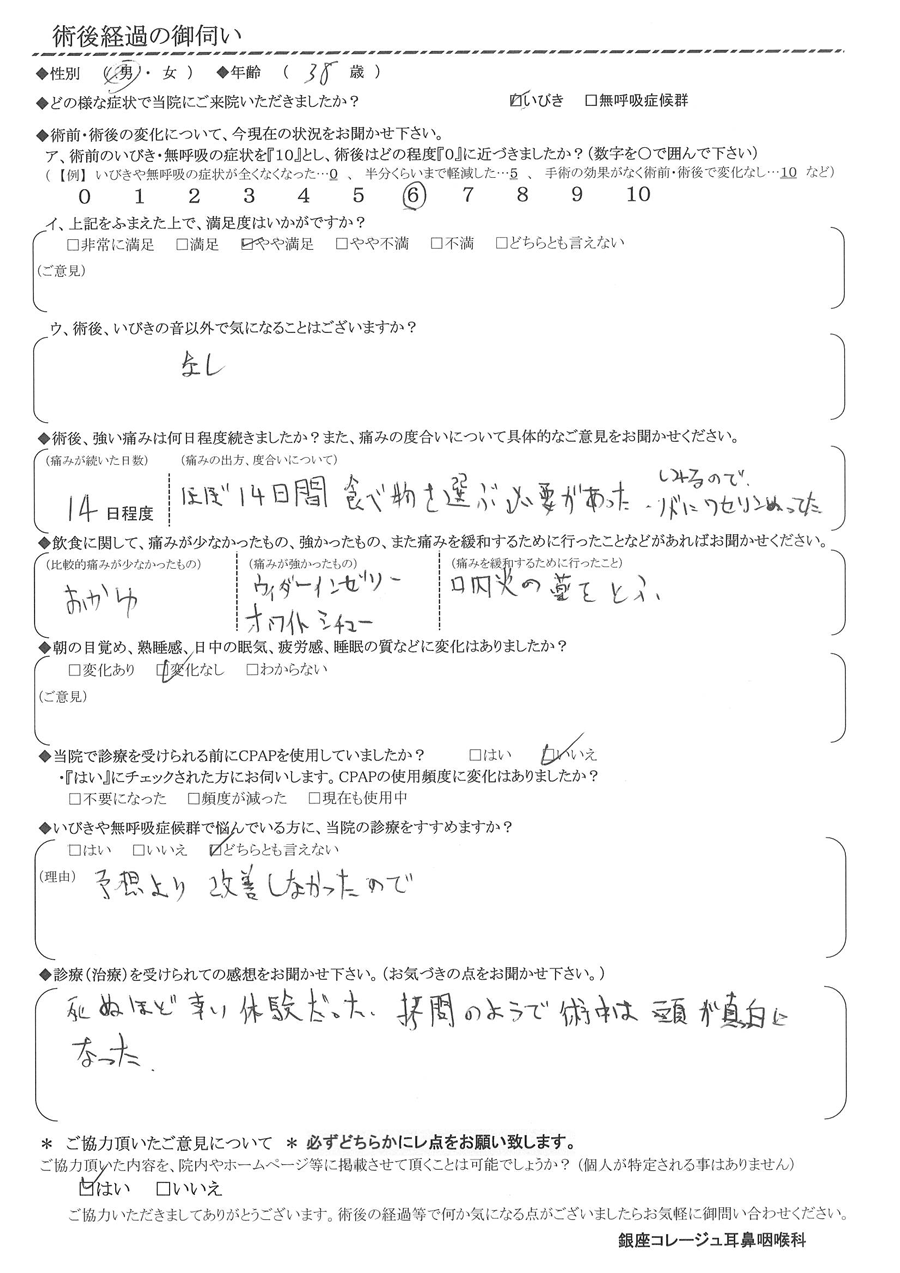 術後経過の御伺い
◆性別 (男・女) ◆年齢 ( 38 歳 )
◆どの様な症状で当院にご来院いただきましたか? ☑いびき □無呼吸症候群
◆術前・術後の変化について、今現在の状況をお聞かせ下さい。
ア、術前のいびき・無呼吸の症状を『10』とし、術後はどの程度『0』に近づきましたか?(数字を〇で囲んで下さい)
(【例】いびきや無呼吸の症状が全くなくなった…0 、 半分くらいまで軽減した…5 、 手術の効果がなく術前・術後で変化なし…10 など)
0 1 2 3 4 5 6 7 8 9 10
イ、上記をふまえた上で、満足度はいかがですか?
□非常に満足 □満足 ☑やや満足 □やや不満 □不満 □どちらとも言えない
(ご意見)
ウ、術後、いびきの音以外で気になることはございますか?
なし
◆術後、強い痛みは何日程度続きましたか?また、痛みの度合いについて具体的なご意見をお聞かせください。
(痛みが続いた日数) (痛みの出方、度合いについて)
14日程度 ほぼ14日間 食べ物を選ぶ必要があった
しみるので、
ワセリンぬってた
◆飲食に関して、痛みが少なかったもの、強かったもの、また痛みを緩和するために行ったことなどがあればお聞かせください。
(比較的痛みが少なかったもの) (痛みが強かったもの) (痛みを緩和するために行ったこと)
おかゆ ウィダーインゼリー 口内炎の薬を
ホワイトシチュー
◆朝の目覚め、熟睡感、日中の眠気、疲労感、睡眠の質などに変化はありましたか?
□変化あり ☑変化なし □わからない
(ご意見)
◆当院で診療を受けられる前にCPAPを使用していましたか? □はい ☑いいえ
・『はい』にチェックされた方にお伺いします。CPAPの使用頻度に変化はありましたか?
□不要になった □頻度が減った □現在も使用中
◆いびきや無呼吸症候群で悩んでいる方に、当院の診療をすすめますか?
□はい □いいえ ☑どちらとも言えない
(理由) 予想より 改善しなかったので
◆診療(治療)を受けられての感想をお聞かせ下さい。(お気づきの点をお聞かせ下さい。)
死ぬほど辛い体験だった、拷問のようで術中は頭が真白に
なった.
＊ ご協力頂いたご意見について ＊ 必ずどちらかにレ点をお願い致します。
ご協力頂いた内容を、院内やホームページ等に掲載させて頂くことは可能でしょうか?(個人が特定される事はありません)
☑はい □いいえ
ご協力いただきましてありがとうございます。術後の経過等で何か気になる点がございましたらお気軽に御問い合わせください。
銀座コレージュ耳鼻咽喉科